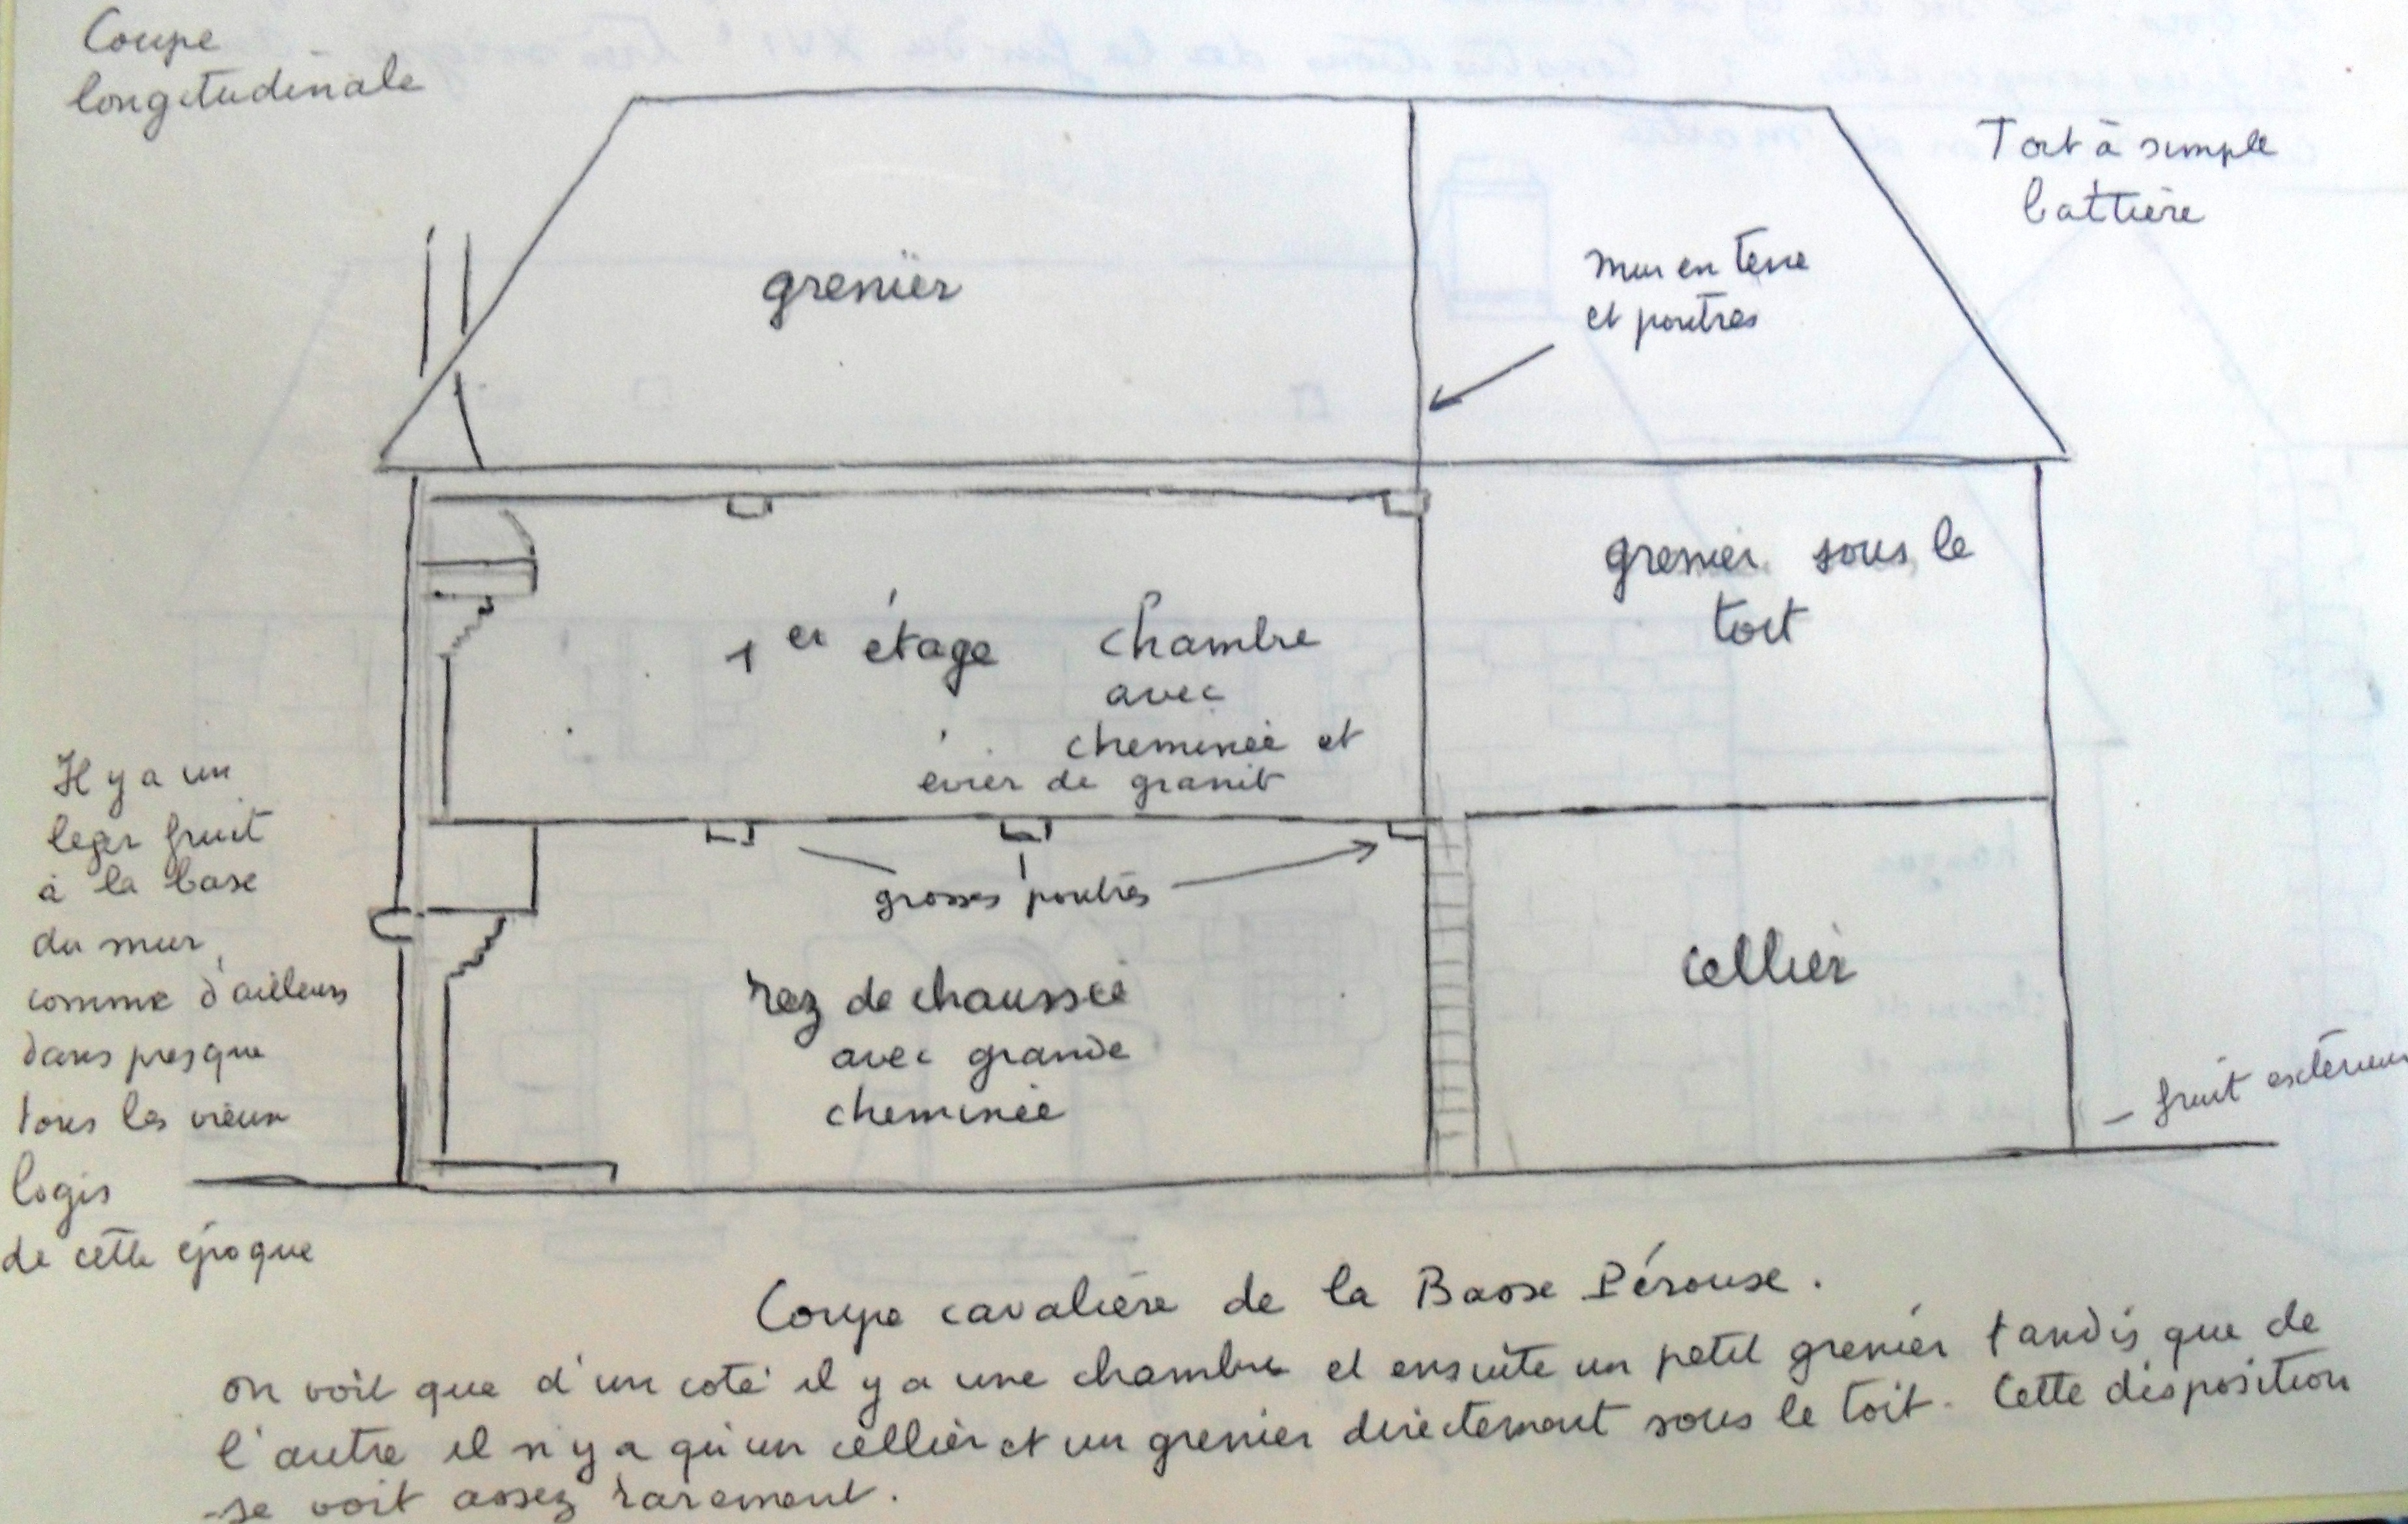 Coupe
longitudinale
Toit à simple
battière
grenier
mur en terre
et poutres
grenier sous le
toit
1er étage
chambre
avec
cheminée et
evier de granit
Il y a un
leger fruit
à la base
du mur,
comme d'ailleurs
dans presque
tous les vieux
logis
de cette époque
grosses poutres
cellier
rez de chaussée
avec grande
cheminée
– fruit extérieur
Coupe cavalière de la Basse Pérouse.
on voit que d'un coté il y a une chambre et ensuite un petit grenier tandis que de
l'autre il n'y a qu'un cellier et un grenier directement sous le toit. Cette disposition
se voit assez rarement.